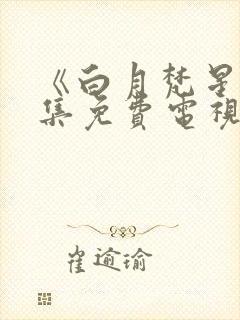 《白月梵星
集免費電視
崔逾瑜